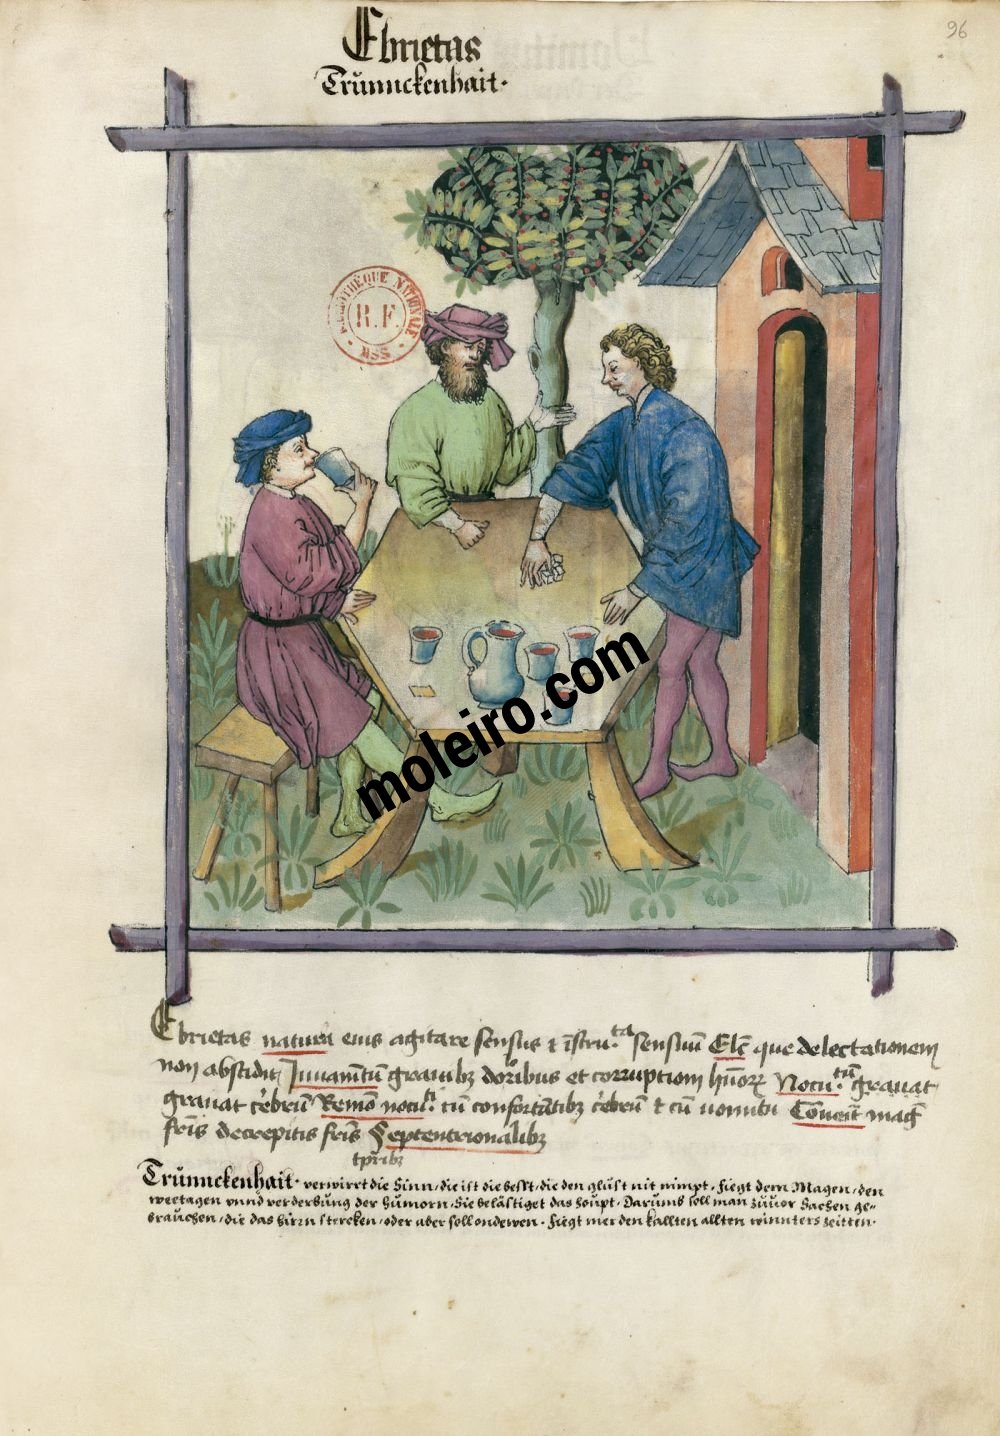 96
Ebrietas
Trŭnnckenhait·
BIBLIOTHÈQUE NATIONALE
R.F.
MSS
moleiro.com
Ebrietas natura eius agitare sensus & īstru.ta sensuū Elc̄ que delectationem
non abscidit Iuuamtū grauibꝫ doloribus et corruptiom hūorꝝ Nocu.tū grauat
grauat cēbrū Remō nocu.ti cū confortātibꝫ cēbrū & cū uomitu Cōueīt maḡ
fris decrepitis fris Septentrionalibꝫ
tpribꝫ
Trŭnnckenhait· verwirrt die Sinn/die ist die best/die den glust nit nimpt· fiegt dem Magen/den
weetagen vnnd verderbŭng der hŭmorn/Sie belästiget das houpt· Darŭmb soll man zŭŭor Sachen ge-
braŭchen/die das hirrn stercken/oder aber soll ondewen· fiegt mer den kallten allten winnters zeitten·